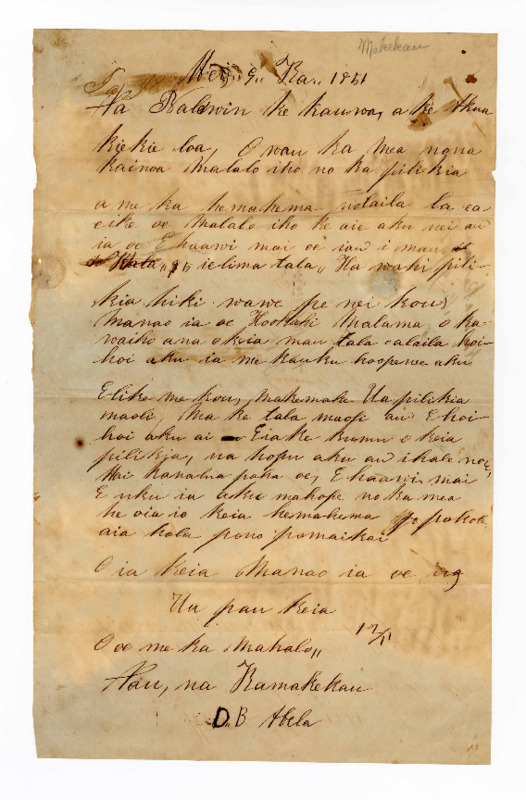 Makekau
Mei, 9,, Ka,, 1851
Na Baldwin ke kauwa, a ke Akua
kiekie loa, O wau ka mea nona
kainoa Malalo iho no ka pilikia
a me ka hemahema nolaila la ea
eike oe Malalo iho ke aie aku nei au
ia oe E haawi mai oe iau i mau
Tala,, 5,, ielima tala,, Ka waki pili-
kia hiki wawe pe nei kou,
manao ia oe Hookahi Malama o ka
waiho ana okoia mau tala alaila hoi-
hoi aku ia me kauku hoopanee aku
Elike me kou, Makemake Ua pilikia
maoli, Ma ke tala maoli au E hoi-
hoi aku ai Eia ke kumu o keia
pilikia, ua hopu aku au i hale nou,
Mai kanalua paha oe, E haawi mai
E uku ia aku mahope no ka mea
he oia io keia hemahema
aia kala pono pomaikai
O ia keia Manao ia oe
Ua pau keia
O oe me ka Mahalo,,
Nau, na Kamakekau
D B Abela